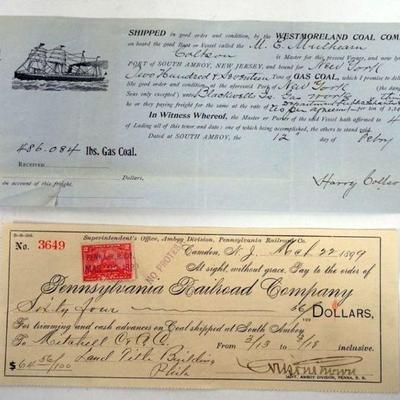 SHIPPED in good order and condition, by the WESTMORELAND COAL COM
on board the good Boat or Vessel called the M. E. Mulhearn
is Master for this present Voyage, and now lying
PORT OF SOUTH AMBOY, NEW JERSEY, and bound for New York
Two Hundred & Seventeen Tons of GAS COAL, which I promise to deliv
like good order and condition, at the aforesaid Port of New York
Seas only excepted) unto Blackwells Is. Gas works
he or they paying freight for the same at the rate of as per agreement for ton of 2,240
In Witness Whereof, the Master or Purser of the said Vessel hath affirmed to 4
of Lading all of this tenor and date; one of which being accomplished, the others to stand void.
Dated at SOUTH AMBOY, the 12" day of Febry
486.084 lbs. Gas Coal.
RECEIVED
Dollars,
on account of this freight.
Harry
Superintendent's Office, Amboy Division, Pennsylvania Railroad Co.
No. 3649
Camden, N. J. Mch. 22 1899
At sight, without grace, Pay to the order of
NO PROTEST
Pennsylvania Railroad Company
Sixty four 56/100 DOLLARS,
For trimming and cash advances on Coal shipped at South Amboy
From 3/13 to 3/18 inclusive.
To Mitchell
Land Title Building
Phila
$64 56/100
SUPT. AMBOY DIVISION, PENNA. R. R.